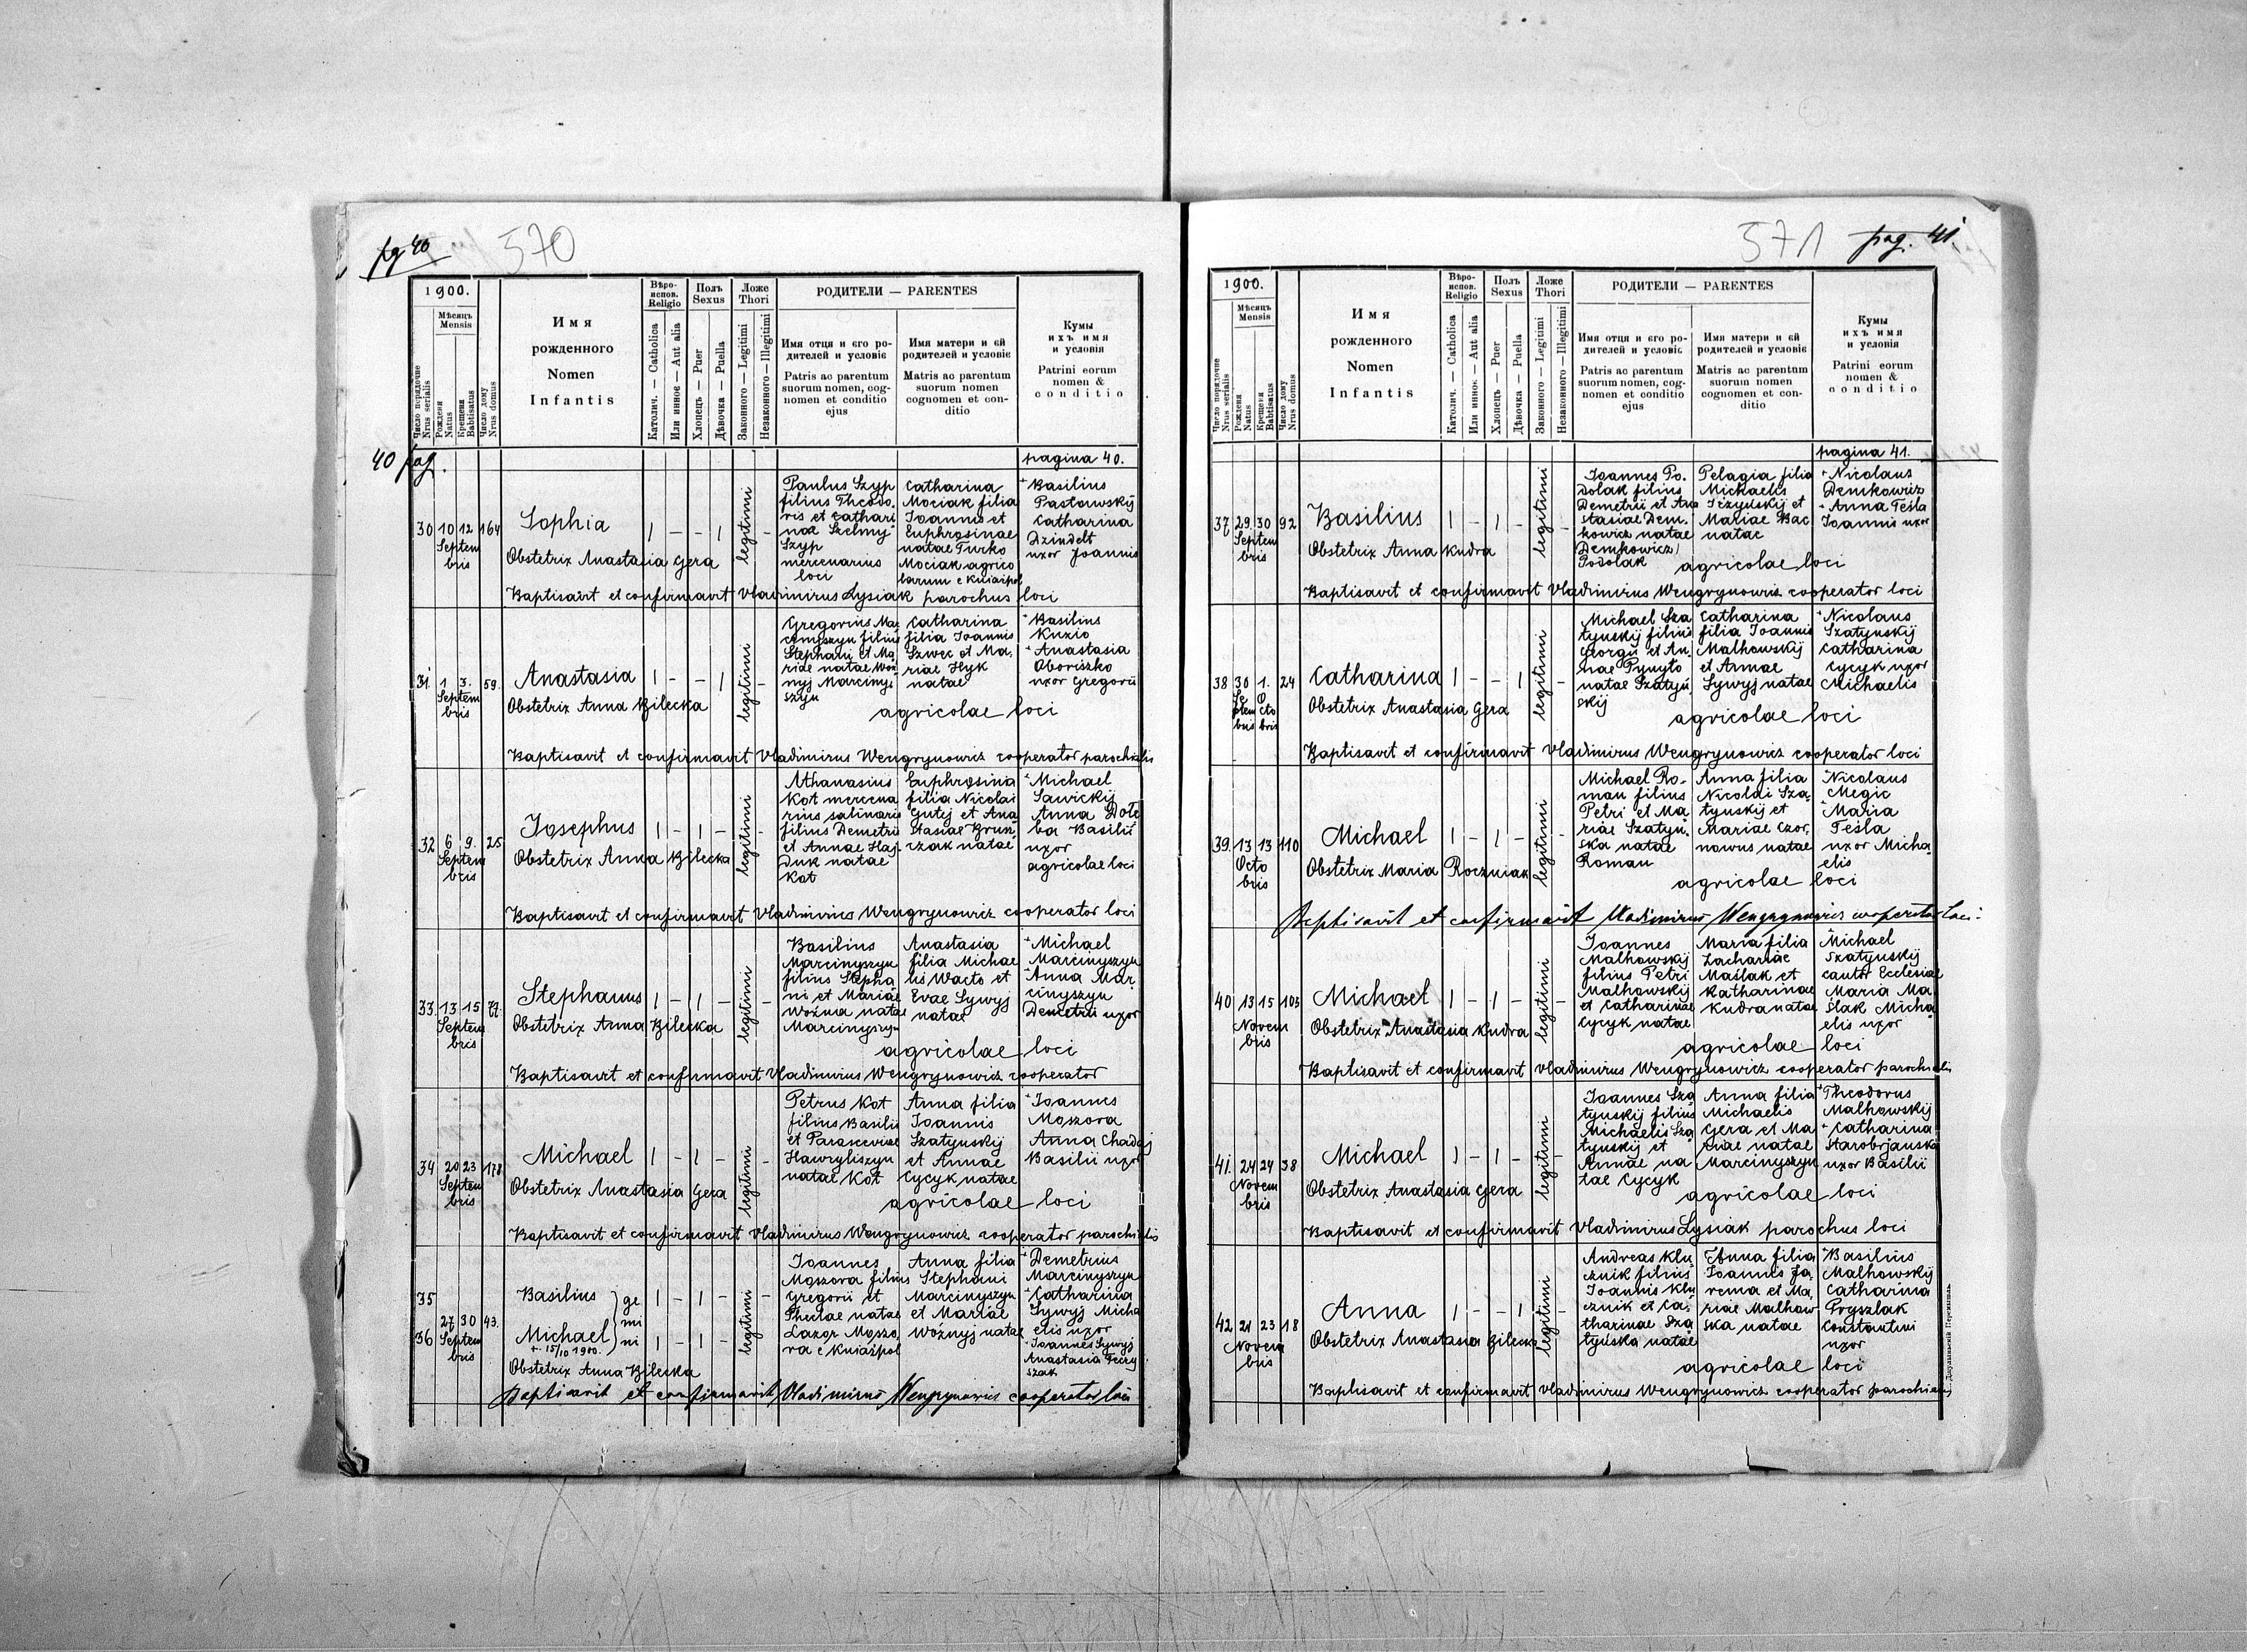 pg 40
570
1900.
Мѣсяцъ
Mensis
Число порядочне
Nrus serialis
Рожденя
Natus
Крещеня
Babtisatus
Число дому
Nrus domus
Имя
рожденного
Nomen
Infantis
Вѣро-
испов.
Religio
Католич. — Catholica
Или инное — Aut alia
Полъ
Sexus
Хлопець — Puer
Дѣвочка — Puella
Ложе
Thori
Законного — Legitimi
Незаконного — Illegitimi
РОДИТЕЛИ — PARENTES
Имя отця и єго ро-
дителей и условіє
Patris ac parentum
suorum nomen, cog-
nomen et conditio
ejus
Имя матери и єй
родителей и условіє
Matris ac parentum
suorum nomen
cognomen et con-
ditio
Кумы
ихъ имя
и условія
Patrini eorum
nomen &
conditio
40 pag.
pagina 40.
30 10 12 164
Septem
bris
Sophia
1 – – 1
legitimi
–
Obstetrix Anastasia Gera
Paulus Szyp
filius Theodo.
ris et Cathari
nae Szelmy
Szyp
mercenarius
loci
Catharina
Mociak filia
Joannis et
Euphrosinae
natae Turko
Mociak agrico
larum e Kniażpol
+ Basilius
Pastawskij
Catharina
Dzindelt
uxor Joannis
Baptisavit et confirmavit Vladimirus Lysiak parochus loci
31. 1. 3. 59.
Septem
bris
Anastasia
1 – – 1
legitimi
–
Obstetrix Anna Bilecka
Gregorius Mar
cinyszyn filius
Stephani et Ma
riae natae Woż
nyj Marciny-
szyn
Catharina
filia Joannis
Szwec et Ma.
riae Hyk
natae
+ Basilius
Kuzio
+ Anastasia
Oboriszko
uxor Gregorii
agricolae loci
Baptisavit et confirmavit Vladimirus Wengrynowicz cooperator parochialis
32 6 9. 25
Septem
bris
Josephus
1 – 1 –
legitimi
–
Obstetrix Anna Bilecka
Athanasius
Kot mercena
rius salinaris
filius Demetrii
et Annae Haj-
duk natae
Kot
Euphrosina
filia Nicolai
Gutej et Ana
stasiae Brun
czak natae
+ Michael
Sawickij
Anna Dole
ba Basilii
uxor
agricolae loci
Baptisavit et confirmavit Vladimirus Wengrynowicz cooperator loci
33. 13 15 72.
Septem
bris
Stephanus
1 – 1 –
legitimi
–
Obstetrix Anna Bilecka
Basilius
Marcinyszyn
filius Stepha
ni et Mariae
Woźnia natae
Marcinyszyn
Anastasia
filia Michae
lis Wacts et
Evae Sywyj
natae
+ Michael
Marcinyszyn
+ Anna Mar
cinyszyn
Demetrii uxor
agricolae loci
Baptisavit et confirmavit Vladimirus Wengrynowicz cooperator
34 20 23 178
Septem
bris
Michael
1 – 1 –
legitimi
–
Obstetrix Anastasia Gera
Petrus Kot
filius Basilii
et Parasceviae
Hawryliszyn
natae Kot
Anna filia
Joannis
Szatynskij
et Annae
Cycyk natae
+ Joannes
Moszora
Anna Chadaj
Basilii uxor
agricolae loci
Baptisavit et confirmavit Vladimirus Wengrynowicz cooperator parochialis
35
36
27 30 43.
Septem
bris
Basilius
Michael
+ 15/10 1900.
ge
mi
ni
1 – 1 –
1 – 1 –
legitimi
–
Obstetrix Anna Bilecka
Joannes
Moszora filius
Gregorii et
Theclae natae
Lazor Moszo
ra e Kniażpol
Anna filia
Stephani
Marcinyszyn
et Mariae
Woźnyj natae
+ Demetrius
Marcinyszyn
+ Catharina
Sywyj Micha
elis uxor
+ Joannes Sywyj
Anastasia Fecry
szak
Baptisavit et confirmavit Vladimirus Wengrynowicz cooperator loci
571
pag. 41.
1900.
Мѣсяцъ
Mensis
Число порядочне
Nrus serialis
Рожденя
Natus
Крещеня
Babtisatus
Число дому
Nrus domus
Имя
рожденного
Nomen
Infantis
Вѣро-
испов.
Religio
Католич. — Catholica
Или инное — Aut alia
Полъ
Sexus
Хлопець — Puer
Дѣвочка — Puella
Ложе
Thori
Законного — Legitimi
Незаконного — Illegitimi
РОДИТЕЛИ — PARENTES
Имя отця и єго ро-
дителей и условіє
Patris ac parentum
suorum nomen, cog-
nomen et conditio
ejus
Имя матери и єй
родителей и условіє
Matris ac parentum
suorum nomen
cognomen et con-
ditio
Кумы
ихъ имя
и условія
Patrini eorum
nomen &
conditio
pagina 41.
37. 29. 30 92
Septem
bris
Basilius
1 – 1 –
legitimi
–
Obstetrix Anna Kudra
Joannes Po.
dolak filius
Demetrii et Ana
stasiae Dem.
kowicz natae
Demkowicz/
Podolak
Pelagia filia
Michaelis
Jeżyńskij et
Mariae Bac
natae
+ Nicolaus
Demkowicz
+ Anna Tesla
Joannis uxor
agricolae loci
Baptisavit et confirmavit Vladimirus Wengrynowicz cooperator loci
38 30 1. 24
Se
ptem
bris
O
cto
bris
Catharina
1 – – 1
legitimi
–
Obstetrix Anastasia Gera
Michael Sza
tynskij filius
Georgii et An.
nae Pynyto
natae Szatyń
skij
Catharina
filia Joannis
Malhowskij
et Annae
Sywyj natae
+ Nicolaus
Szatynskij
Catharina
Cycyk uxor
Michaelis
agricolae loci
Baptisavit et confirmavit Vladimirus Wengrynowicz cooperator loci
39. 13 13 110
Octo
bris
Michael
1 – 1 –
legitimi
–
Obstetrix Maria Roczniak
Michael Ro-
man filius
Petri et Ma
riae Szatyn.
ska natae
Roman
Anna filia
Nicolai Sza.
tynskij et
Mariae Czor,
nowus natae
+ Nicolaus
Megic
+ Maria
Tesla
uxor Micha
elis
agricolae loci
Baptisavit et confirmavit Vladimirus Wengrynowicz cooperator loci.
40 13 15 105
Novem
bris
Michael
1 – 1 –
legitimi
–
Obstetrix Anastasia Kudra
Joannes
Malhowskij
filius Petri
Malhowskij
et Catharinae
Cycyk natae
Maria filia
Zachariae
Maślak et
Katharinae
Kudra natae
+ Michael
Szatynskij
cantor Ecclesiae
Maria Ma
ślak Micha
elis uxor
agricolae loci
Baptisavit et confirmavit Vladimirus Wengrynowicz cooperator parochialis
41. 24 24 38
Novem
bris
Michael
1 – 1 –
legitimi
–
Obstetrix Anastasia Gera
Joannes Sza
tynskij filius
Michaelis Sza
tynskij et
Annae na
tae Cycyk
Anna filia
Michaelis
Gera et Ma
riae natae
Marcinyszyn
+ Theodorus
Malhowskij
+ Catharina
Starobrjanska
uxor Basilii
agricolae loci
Baptisavit et confirmavit Vladimirus Lysiak parochus loci
42 21 23 18
Novem
bris
Anna
1 – – 1
legitimi
–
Obstetrix Anastasia Bilecka
Andreas Klu
cznik filius
Joannis Klu
cznik et Ca.
tharinae Sza
tyńska natae
Anna filia
Joannis Ja.
rema et Ma.
riae Malhow
ska natae
+ Basilius
Malhowskij
Catharina
Pryszlak
Constantini
uxor
agricolae loci
Baptisavit et confirmavit Vladimirus Wengrynowicz cooperator parochialis